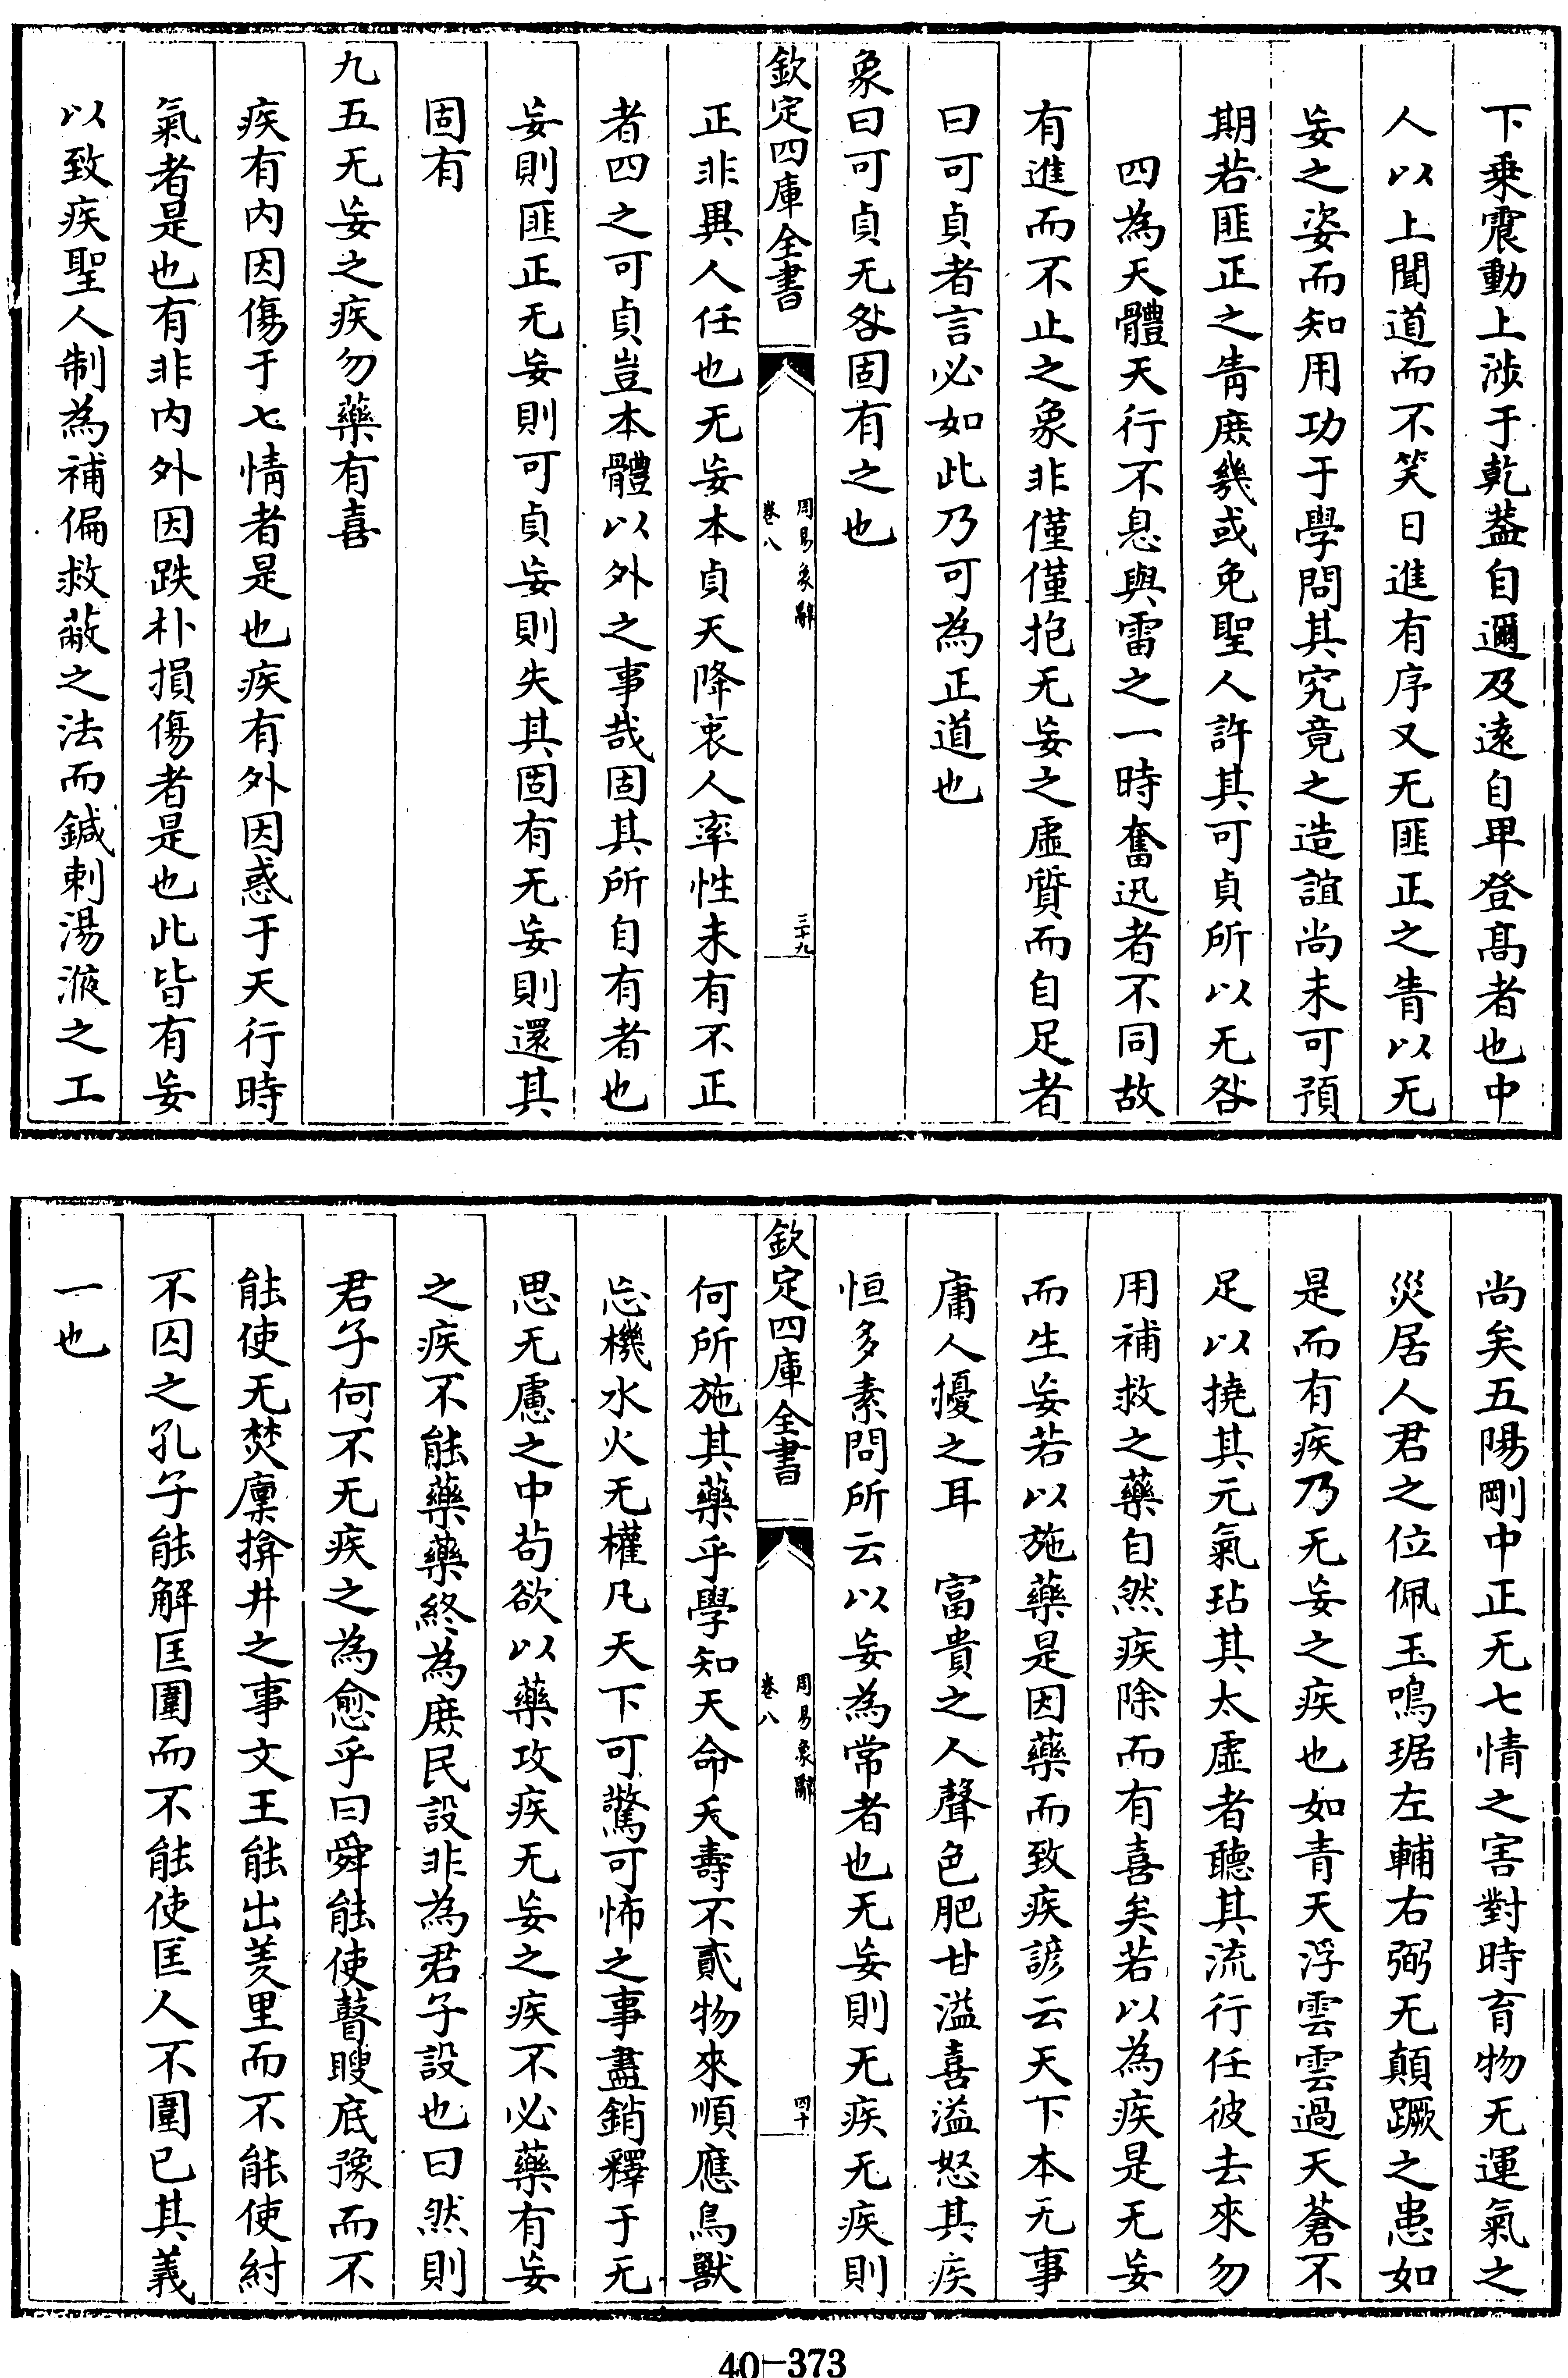 下乗震動上渉于乾葢自邇及逺自卑登髙者也中
人以上聞道而不笑日進有序又无匪正之眚以无
妄之姿而知用功于學問其究竟之造詣尚未可預
期若匪正之眚庶幾或免聖人許其可貞所以无咎
四為天體天行不息與雷之一時奮迅者不同故
有進而不止之象非僅僅抱无妄之虚質而自足者
曰可貞者言必如此乃可為正道也
象曰可貞无咎固有之也
欽定四庫全書
周易象辭
卷八
三十九
正非異人任也无妄本貞天降衷人率性未有不正
者四之可貞豈本體以外之事哉固其所自有者也
妄則匪正无妄則可貞妄則失其固有无妄則還其
固有
九五无妄之疾勿藥有喜
疾有内因傷于七情者是也疾有外因惑于天行時
氣者是也有非内外因跌朴損傷者是也此皆有妄
以致疾聖人制為補偏救蔽之法而鍼刺湯液之工
尚矣五陽剛中正无七情之害對時育物无運氣之
災居人君之位佩玉鳴琚左輔右弼无顛蹶之患如
是而有疾乃无妄之疾也如青天浮雲雲過天蒼不
足以撓其元氣玷其太虚者聽其流行任彼去來勿
用補救之藥自然疾除而有喜矣若以為疾是无妄
而生妄若以施藥是因藥而致疾諺云天下本无事
庸人擾之耳　富貴之人聲色肥甘溢喜溢怒其疾
恒多素問所云以妄為常者也无妄則无疾无疾則
欽定四庫全書
周易象辭
卷八
四十
何所施其藥乎學知天命夭壽不貳物來順應鳥獸
忘機水火无權凡天下可驚可怖之事盡銷釋于无
思无慮之中茍欲以藥攻疾无妄之疾不必藥有妄
之疾不能藥藥終為庶民設非為君子設也曰然則
君子何不无疾之為愈乎曰舜能使瞽瞍底豫而不
能使无焚廩揜井之事文王能出羑里而不能使紂
不囚之孔子能解匡圍而不能使匡人不圍已其義
一也
40-373